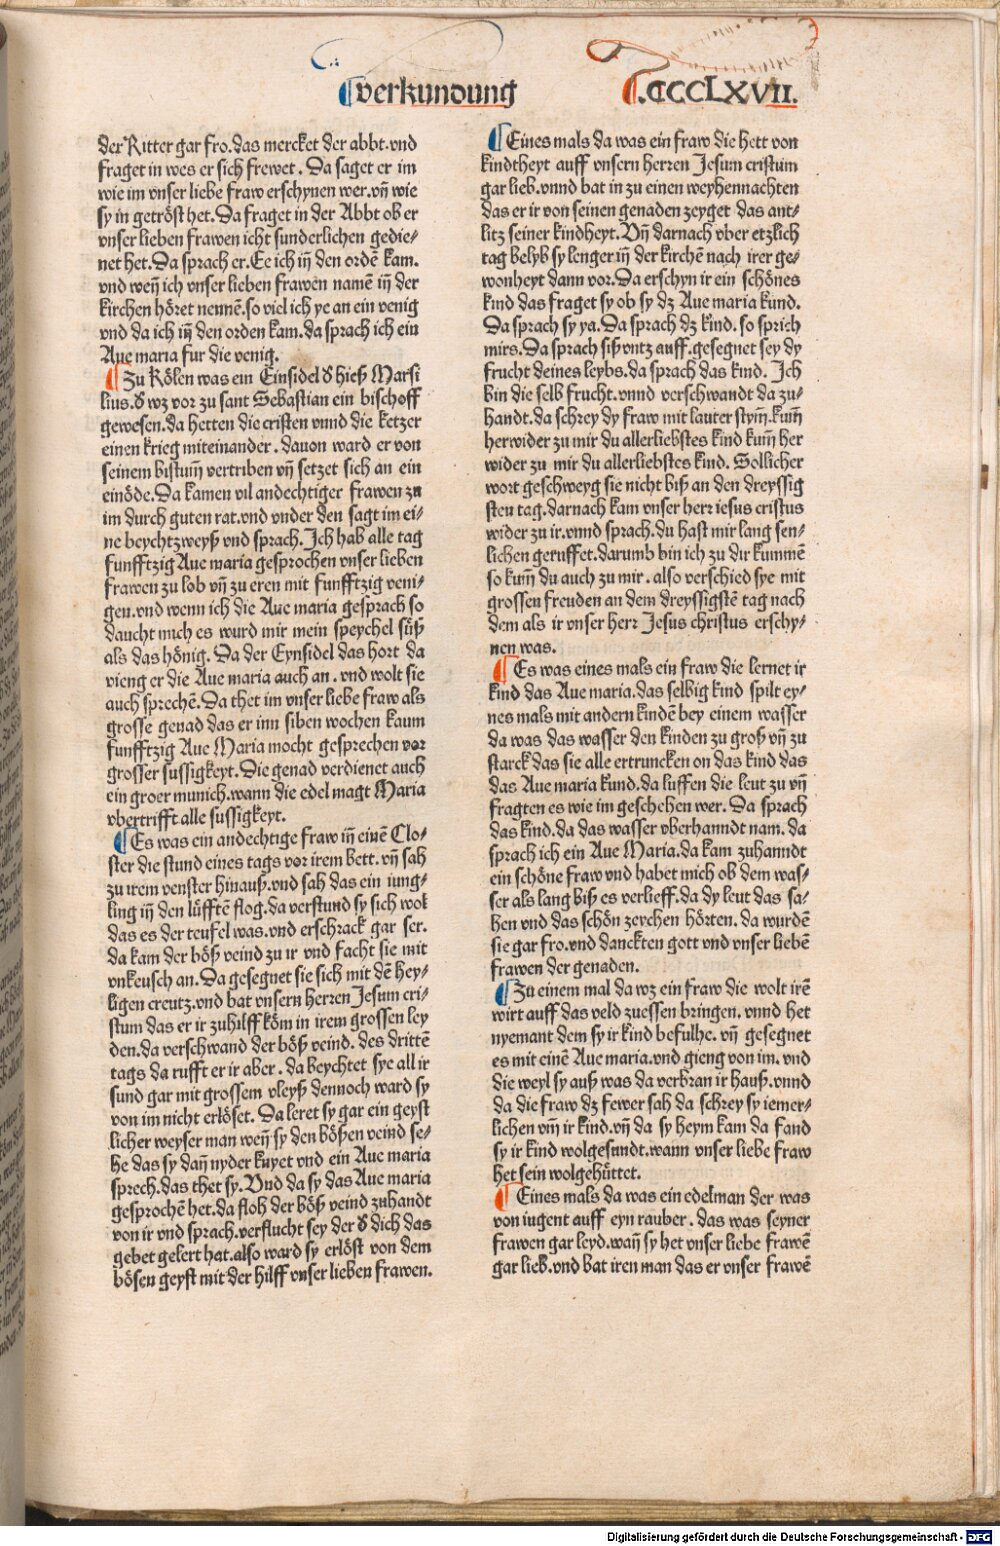 ¶verkundung ¶.CCCLXVII.
der Ritter gar fro.das mercket der abbt.vnd
fraget in wes er sich frewet. Da saget er im
wie im vnser liebe fraw erschynen wer.vñ wie
sy in getröst het.Da fraget in der Abbt ob er
vnser lieben frawen icht sunderlichen gedie-
net het.Da sprach er.Ee ich iñ den ordē kam.
vnd weñ ich vnser lieben frawen namē iñ der
kirchen höret nennē.so viel ich ye an ein venig
vnd da ich iñ den orden kam.da sprach ich ein
Aue maria fur die venig.
¶ Zu Kölen was ein Einsidel d hieß Marsi
lius.d wz vor zu sant Sebastian ein bischoff
gewesen.da hetten die cristen vnnd die ketzer
einen krieg miteinander. dauon ward er von
seinem bistum̄ vertriben vñ setzet sich an ein
einöde.Da kamen vil andechtiger frawen zu
im durch guten rat.vnd vnder den sagt im ei-
ne beychtzweyß vnd sprach.Ich hab alle tag
funfftzig Aue maria gesprochen vnser lieben
frawen zu lob vñ zu eren mit funfftzig veni-
gen.vnd wenn ich die Aue maria gesprach so
daucht mich es wurd mir mein speychel süß
als das hönig. Da der Eynsidel das hort da
vieng er die Aue maria auch an. vnd wolt sie
auch sprechē.Da thet im vnser liebe fraw als
grosse genad das er inn siben wochen kaum
funfftzig Aue Maria mocht gesprechen vor
grosser sussigkeyt.Die genad verdienet auch
ein groer munich.wann die edel magt Maria
vbertrifft alle sussigkeyt.
¶Es was ein andechtige fraw iñ einē Clo-
ster die stund eines tags vor irem bett.vñ sah
zu irem venster hinauß.vnd sah das ein iung-
ling iñ den lüfftē flog.da verstund sy sich wol
das es der teufel was.vnd erschrack gar ser.
da kam der böß veind zu ir vnd facht sie mit
vnkeusch an.Da gesegnet sie sich mit dē hey-
ligen creutz.vnd bat vnsern herren Jesum cri-
stum das er ir zuhilff köm in irem grossen ley
den.da verschwand der böß veind. des drittē
tags da rufft er ir aber. da beychtet sye all ir
sund gar mit grossem vleyß dennoch ward sy
von im nicht erlöset. Da leret sy gar ein geyst
licher weyser man weñ sy den bößen veind se-
he das sy dañ nyder knyet vnd ein Aue maria
sprech.das thet sy.Vnd da sy das Aue maria
gesprochē het.da floh der böß veind zuhandt
von ir vnd sprach.verflucht sey der d dich das
gebet gelert hat.also ward sy erlöst von dem
bösen geyst mit der hilff vnser lieben frawen.
¶Eines mals da was ein fraw die hett von
kindtheyt auff vnsern herren Jesum cristum
gar lieb.vnnd bat in zu einen weyhennachten
das er ir von seinen genaden zeyget das ant-
litz seiner kindheyt.Vñ darnach vber etzlich
tag belyb sy lenger iñ der kirchē nach irer ge-
wonheyt dann vor.Da erschyn ir ein schönes
kind das fraget sy ob sy dz Aue maria kund.
Da sprach sy ya.Da sprach dz kind. so sprich
mirs.Da sprach sihs vntz auff.gesegnet sey dy
frucht deines leybs.da sprach das kind. Ich
bin die selb frucht.vnnd verschwandt da zu-
handt.da schrey dy fraw mit lauter stym̄.kum̄
herwider zu mir du allerliebstes kind kum̄ her
wider zu mir du allerliebstes kind. Sollicher
wort geschweyg sie nicht biß an den dreyssig
sten tag.darnach kam vnser herr iesus cristus
wider zu ir.vnnd sprach.du hast mir lang sen-
lichen geruffet.darumb bin ich zu dir kummē
so kum̄ du auch zu mir. also verschied sye mit
grossen freuden an dem dreyssigstē tag nach
dem als ir vnser herr Jesus christus erschy-
nen was.
¶ Es was eines mals ein fraw die lernet ir
kind das Aue maria.das selbig kind spilt ey-
nes mals mit andern kindē bey einem wasser
da was das wasser den kinden zu groß vñ zu
starck das sie alle ertruncken on das kind das
das Aue maria kund.da luffen die leut zu vñ
fragten es wie im geschehen wer. Da sprach
das kind.da das wasser vberhanndt nam. da
sprach ich ein Aue Maria.da kam zuhanndt
ein schöne fraw vnd habet mich ob dem was-
ser als lang biß es verlieff.da dy leut das sa-
hen vnd das schön zeychen hörten. da wurdē
sie gar fro.vnd danckten gott vnd vnser liebē
frawen der genaden.
¶Zu einem mal da wz ein fraw die wolt irē
wirt auff das veld zuessen bringen. vnnd het
nyemant dem sy ir kind befulhe. vñ gesegnet
es mit einē Aue maria.vnd gieng von im. vnd
die weyl sy auß was da verbran ir hauß.vnnd
da die fraw dz fewer sah da schrey sy iemer-
lichen vm̄ ir kind.vñ da sy heym kam da fand
sy ir kind wolgesundt.wann vnser liebe fraw
het sein wolgehüttet.
¶ Eines mals da was ein edelman der was
von iugent auff eyn rauber. das was seyner
frawen gar leyd.wañ sy het vnser liebe frawē
gar lieb.vnd bat iren man das er vnser frawē
Digitalisierung gefördert durch die Deutsche Forschungsgemeinschaft - DFG